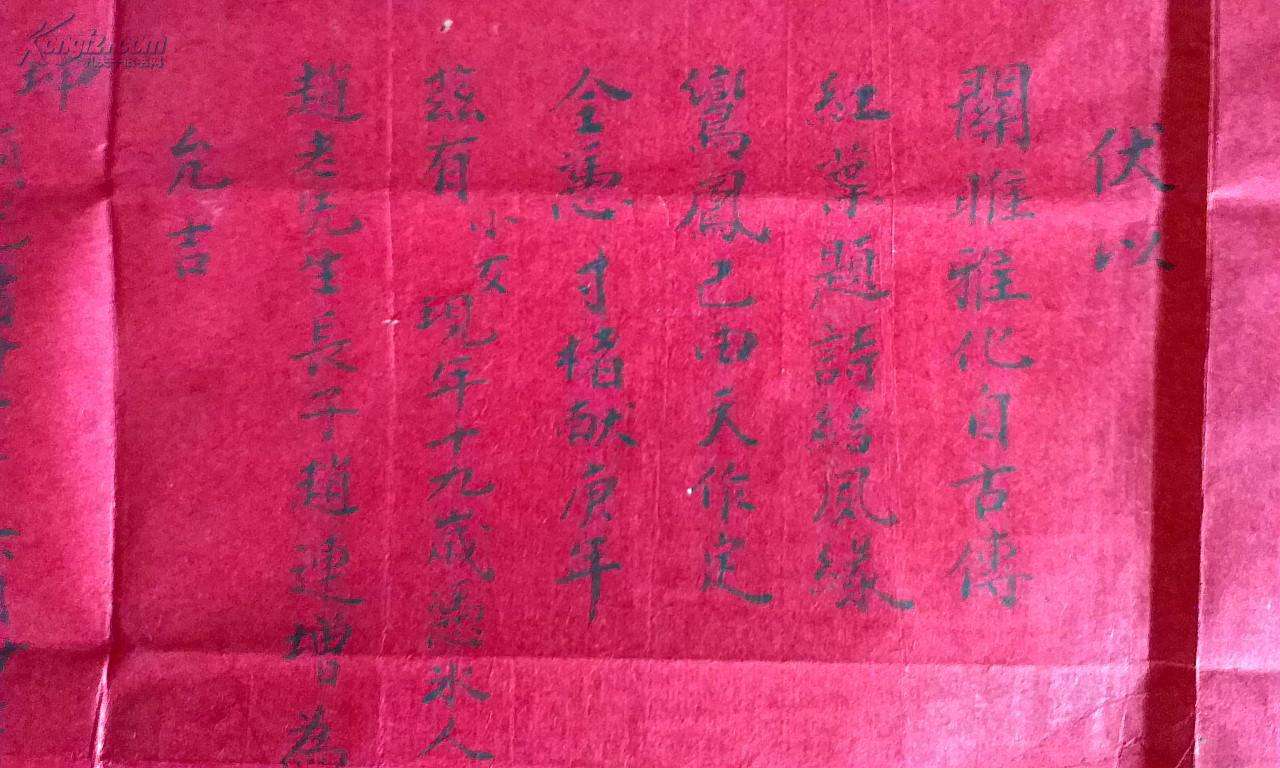 伏以
關雎雅化自古傳
紅葉題詩結風緣
鸞鳳已由天作定
全憑寸楮献庚年
茲有小女現年十九歲憑冰人
趙老先生長子趙連增為
允吉
坤
Kongfz.com